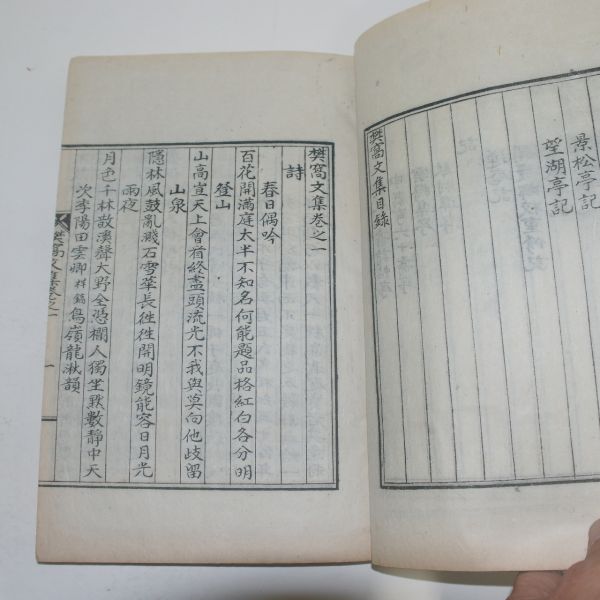 景松亭記
望湖亭記
樊窩文集目錄
樊窩文集卷之一
詩
春日偶吟
百花開滿庭太半不知名何能題品格紅白各分明
登山
山高豈天上會有終盡頭流光不我與莫向他歧留
山泉
隱林風鼓亂濺石雪華長徃徃開明鏡能容日月光
雨夜
月色千林散溪聲大野全憑欄人獨坐默數靜中天
次李陽田雲卿祥鎬鳥嶺龍湫韻
樊窩文集卷之一
一